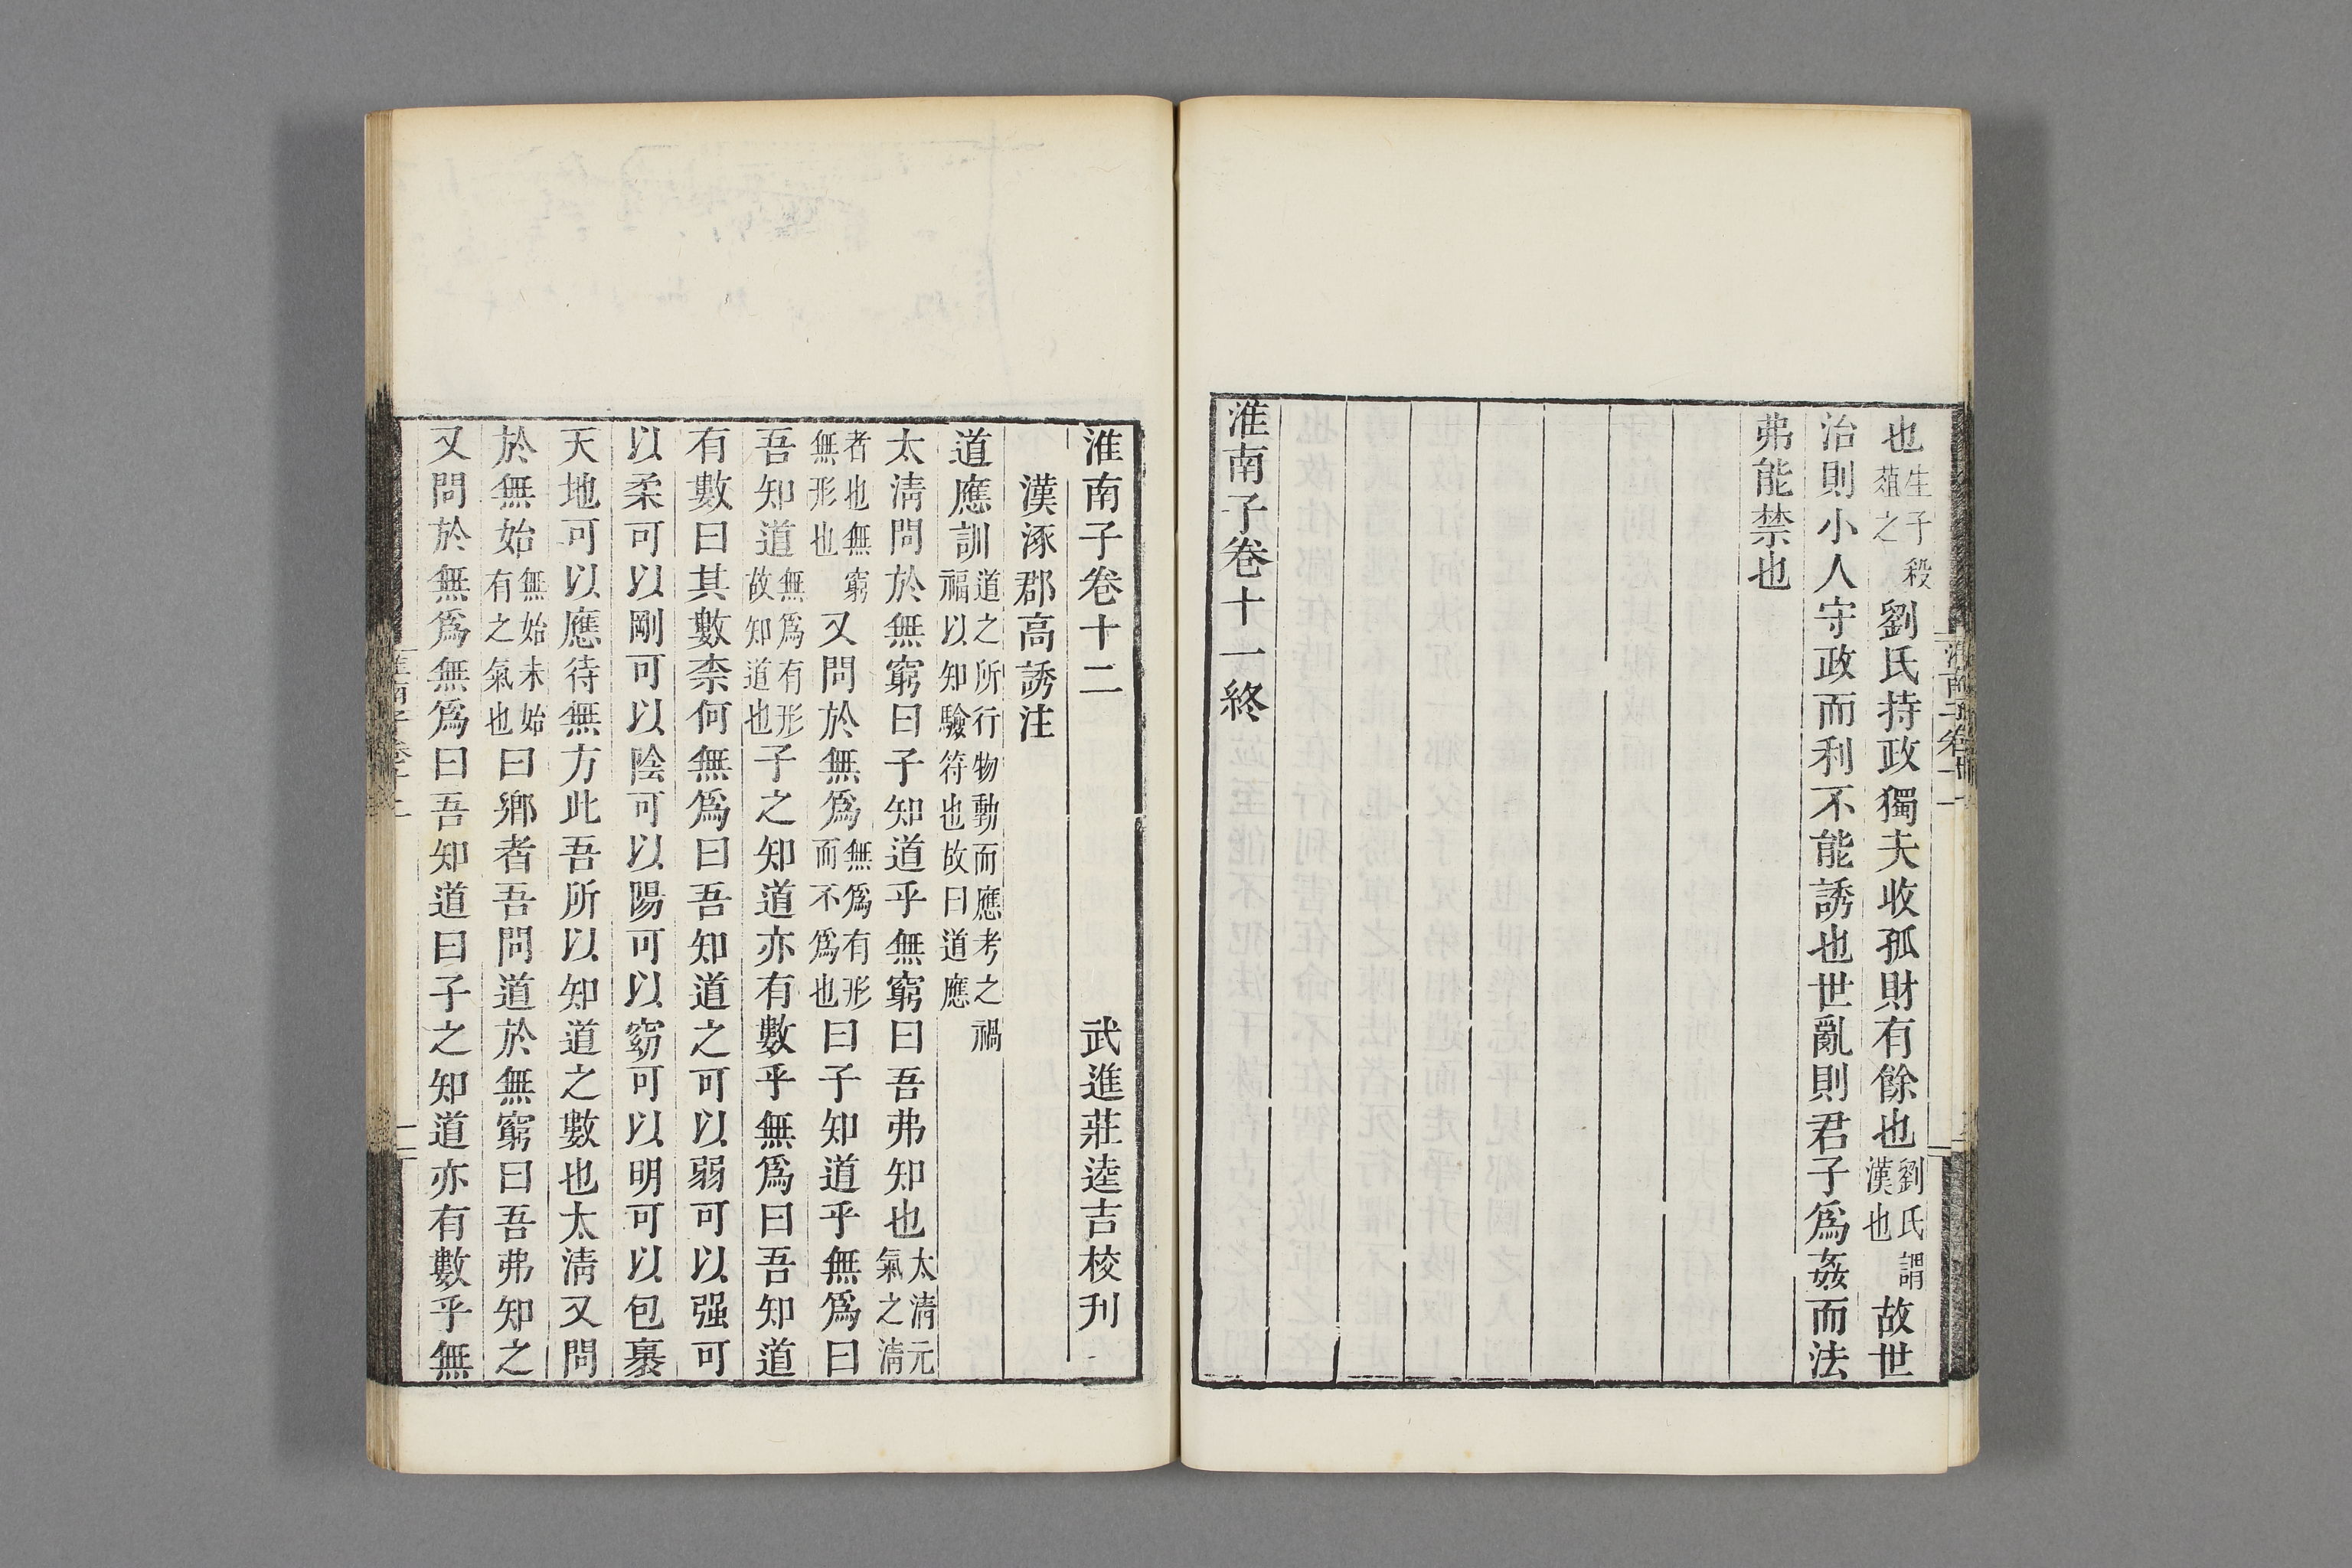 也生子殺菹之劉氏持政獨夫收孤財有餘也劉氏謂漢也故世
治則小人守政而利不能誘也世亂則君子爲姦而法
弗能禁也
淮南子卷十一終
淮南子卷十二 武進莊逵吉校刊
漢涿郡高誘注
道應訓道之所行物動而應考之禍福以知驗符也故曰道應
太淸問於無窮曰子知道乎無窮曰吾弗知也太淸元氣之淸
者也無窮無形也又問於無爲無爲有形而不爲也曰子知道乎無爲曰
吾知道無爲有形故知道也子之知道亦有數乎無爲曰吾知道
有數曰其數柰何無爲曰吾知道之可以弱可以强可
以柔可以剛可以陰可以陽可以窈可以明可以包裹
天地可以應待無方此吾所以知道之數也太淸又問
於無始無始未始有之氣也曰鄉者吾問道於無窮曰吾弗知之
又問於無爲無爲曰吾知道曰子之知道亦有數乎無